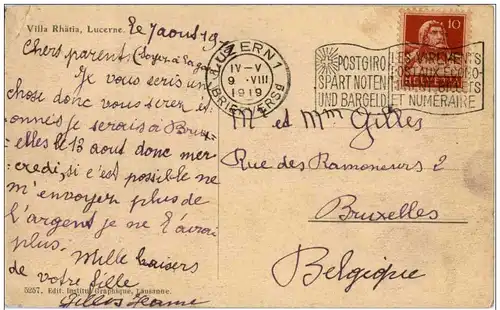 Villa Rhätia, Lucerne. le 7 aout 19
Chers parents (soyez à la gare)
Je vous seris un
chose donc vous serez et
onnés je serais à Brux
elles le 13 aout donc mer
credi, si c'est possible ne
m'envoyer plus de
l'argent je ne l'aurai
plus. Mille baisers
de votre fille
Gilles Jeanne
5257. Edit. Institut Graphique, Lausanne.
LUZERN 1
IV-V
9. VIII
1919
BRIEFVERSd
POSTGIRO
SPART NOTEN
UND BARGELD
ET NUMÉRAIRE
10
HELVETIA
M. et Mme Gilles
Rue des Ramoneurs 2
Bruxelles
Belgique